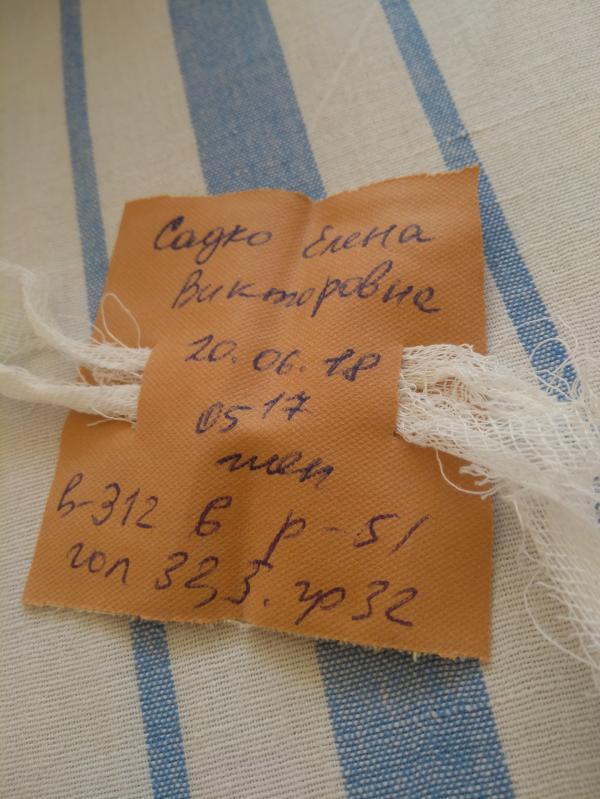 Садко Елена
Викторовна
20.06.18
05 17
жен
в-312 в р-51
гол 32,5. гр 32